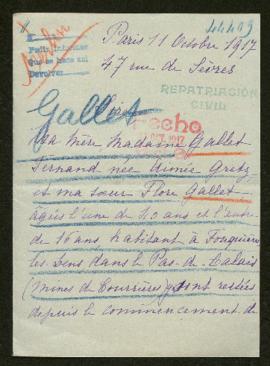 Paris 11 Octobre 1917
47 rue de Sèvres
Pedir informes
Que se hace así
Devolver
REPATRIACIÓN
CIVIL
Gallet
Hecho
OCT. 1917
Ma Mère Madame Gallet
Fernand née Aimée Gretz
et ma sœur Flore Gallet
agées l'une de 40 ans et l'autre
de 16 ans habitant à Fouquières
les Lens dans le Pas-de-Calais
(Mines de Courrières) sont restées
depuis le commencement de